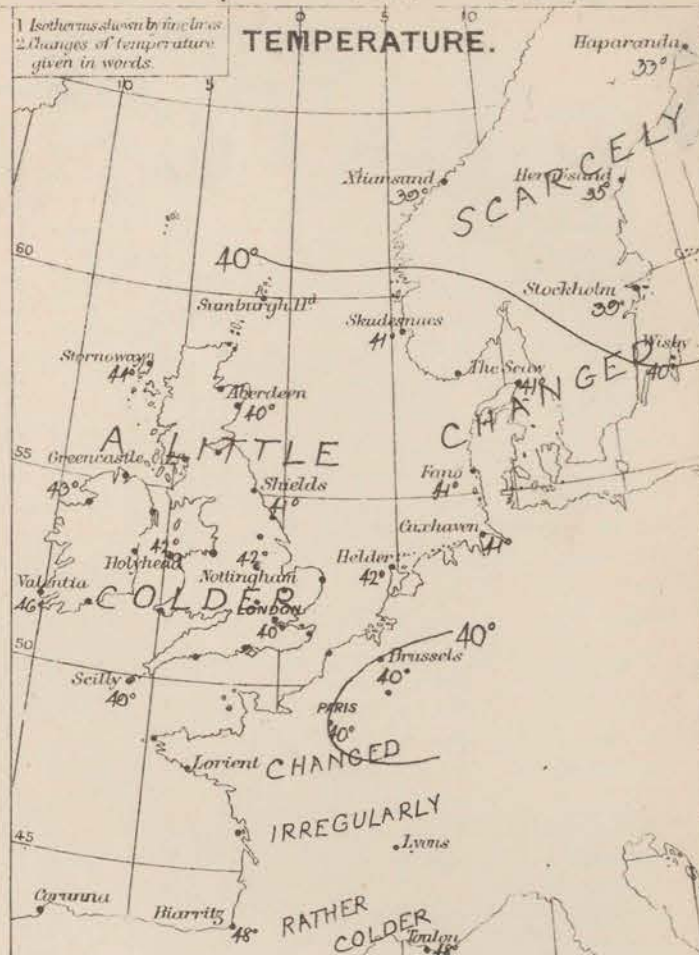 1 Isotherms shown by fine lines
2. Changes of temperature
given in words.
TEMPERATURE.
10
5
0
5
10
Haparanda
33°
Xtiansand
39°
Hernösand
35°
SCARCELY
60
40°
Sunburgh Hd
Stockholm
39°
Skudesnaes
41
Wisby
40°
Stornoway
44°
The Scaw
41°
Aberdeen
40°
CHANGED
A LITTLE
55
Greencastle
43°
Shields
41°
Fano
41°
Cuxhaven
41°
Holyhead
42°
Nottingham
42°
Helder
42°
Valentia
46
COLDER
LONDON
40
50
40°
Brussels
40°
Scilly
40°
PARIS
40°
Lorient
CHANGED
IRREGULARLY
45
Lyons
Corunna
Biarritz
48°
RATHER
COLDER
Toulon
48°